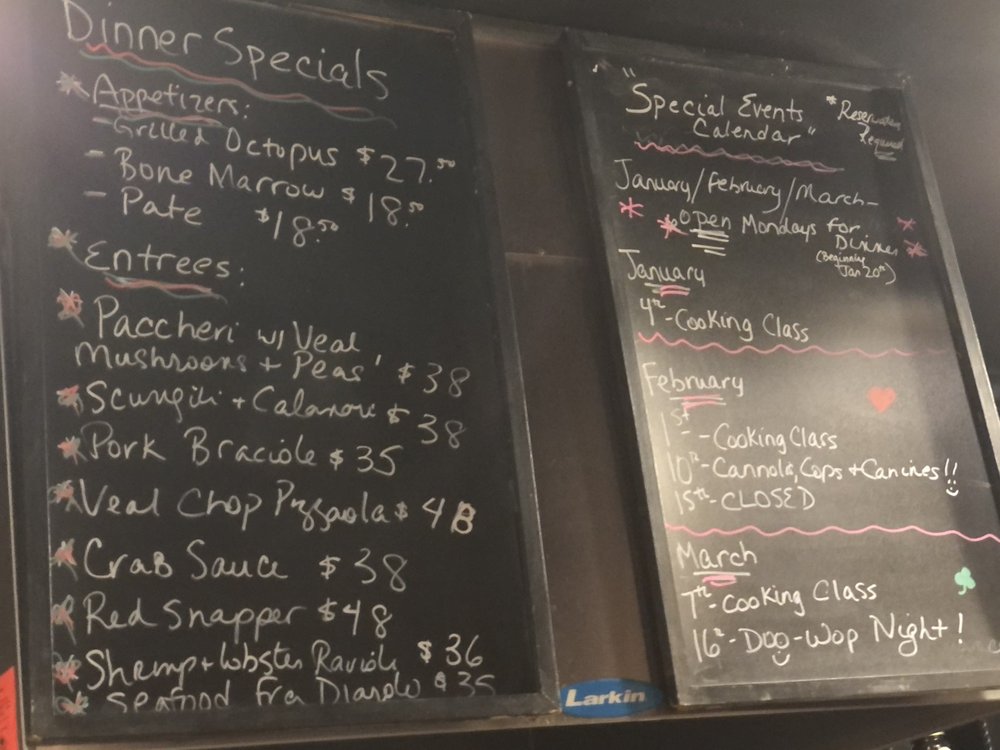 Dinner Specials
Appetizers:
- Grilled Octopus $27.50
- Bone Marrow $18.50
- Pate $18.50
Entrees:
Paccheri w/ Veal
Mushrooms + Peas $38
Scungilli + Calamari $38
Pork Braciole $35
Veal Chop Pizzaola $48
Crab Sauce $38
Red Snapper $48
Shrimp + Lobster Ravioli $36
Seafood Fra Diavlo $35
"Special Events
Calendar"
*Reservation
Required
January/February/March-
Open Mondays for
Dinner
(Beginning
Jan 20th)
January
4th-Cooking Class
February
1st-Cooking Class
10th-Cannola, Cops + Canines!!
15th-CLOSED
March
7th-Cooking Class
16th-Doo-Wop Night!
Larkin